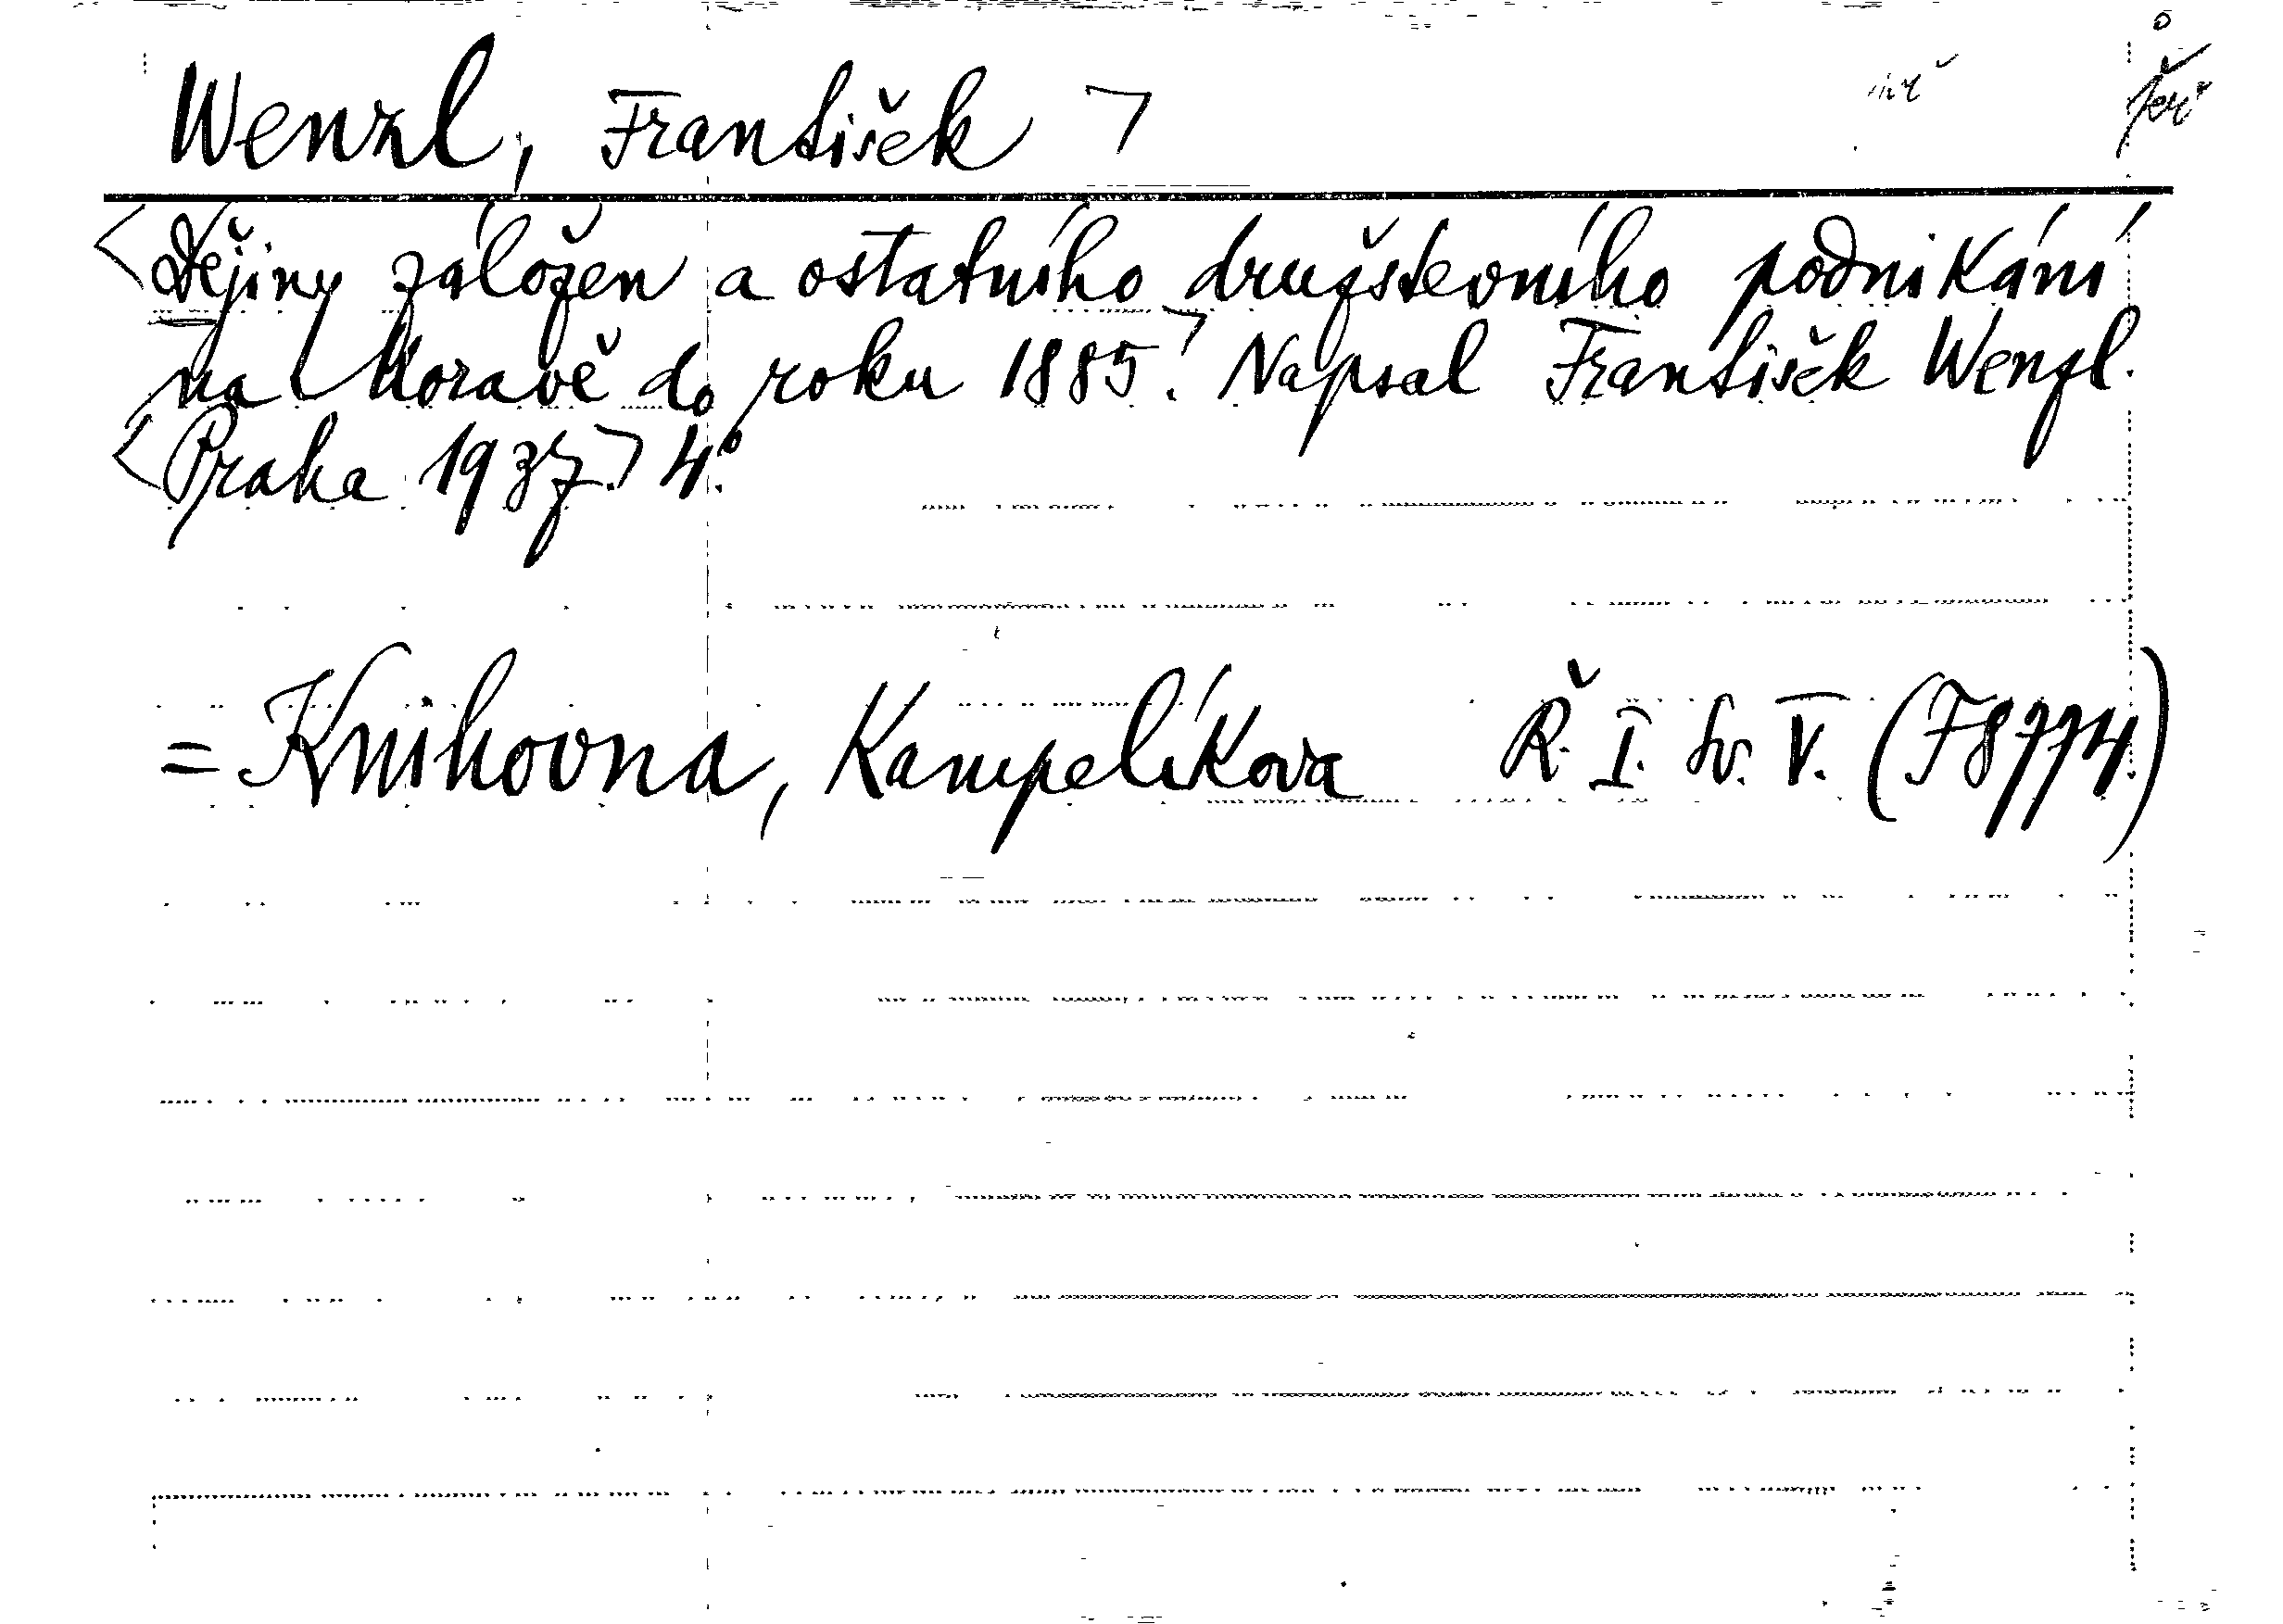 Wenzl, František ¬
<Dějiny záložen a ostatního družstevního podnikání
na Moravě do roku 1885.¬ Napsal František Wenzl.
<Praha 1937.¬ 4°.
= Knihovna, Kampelíkova Ř. I. Sv. V. (F8774)